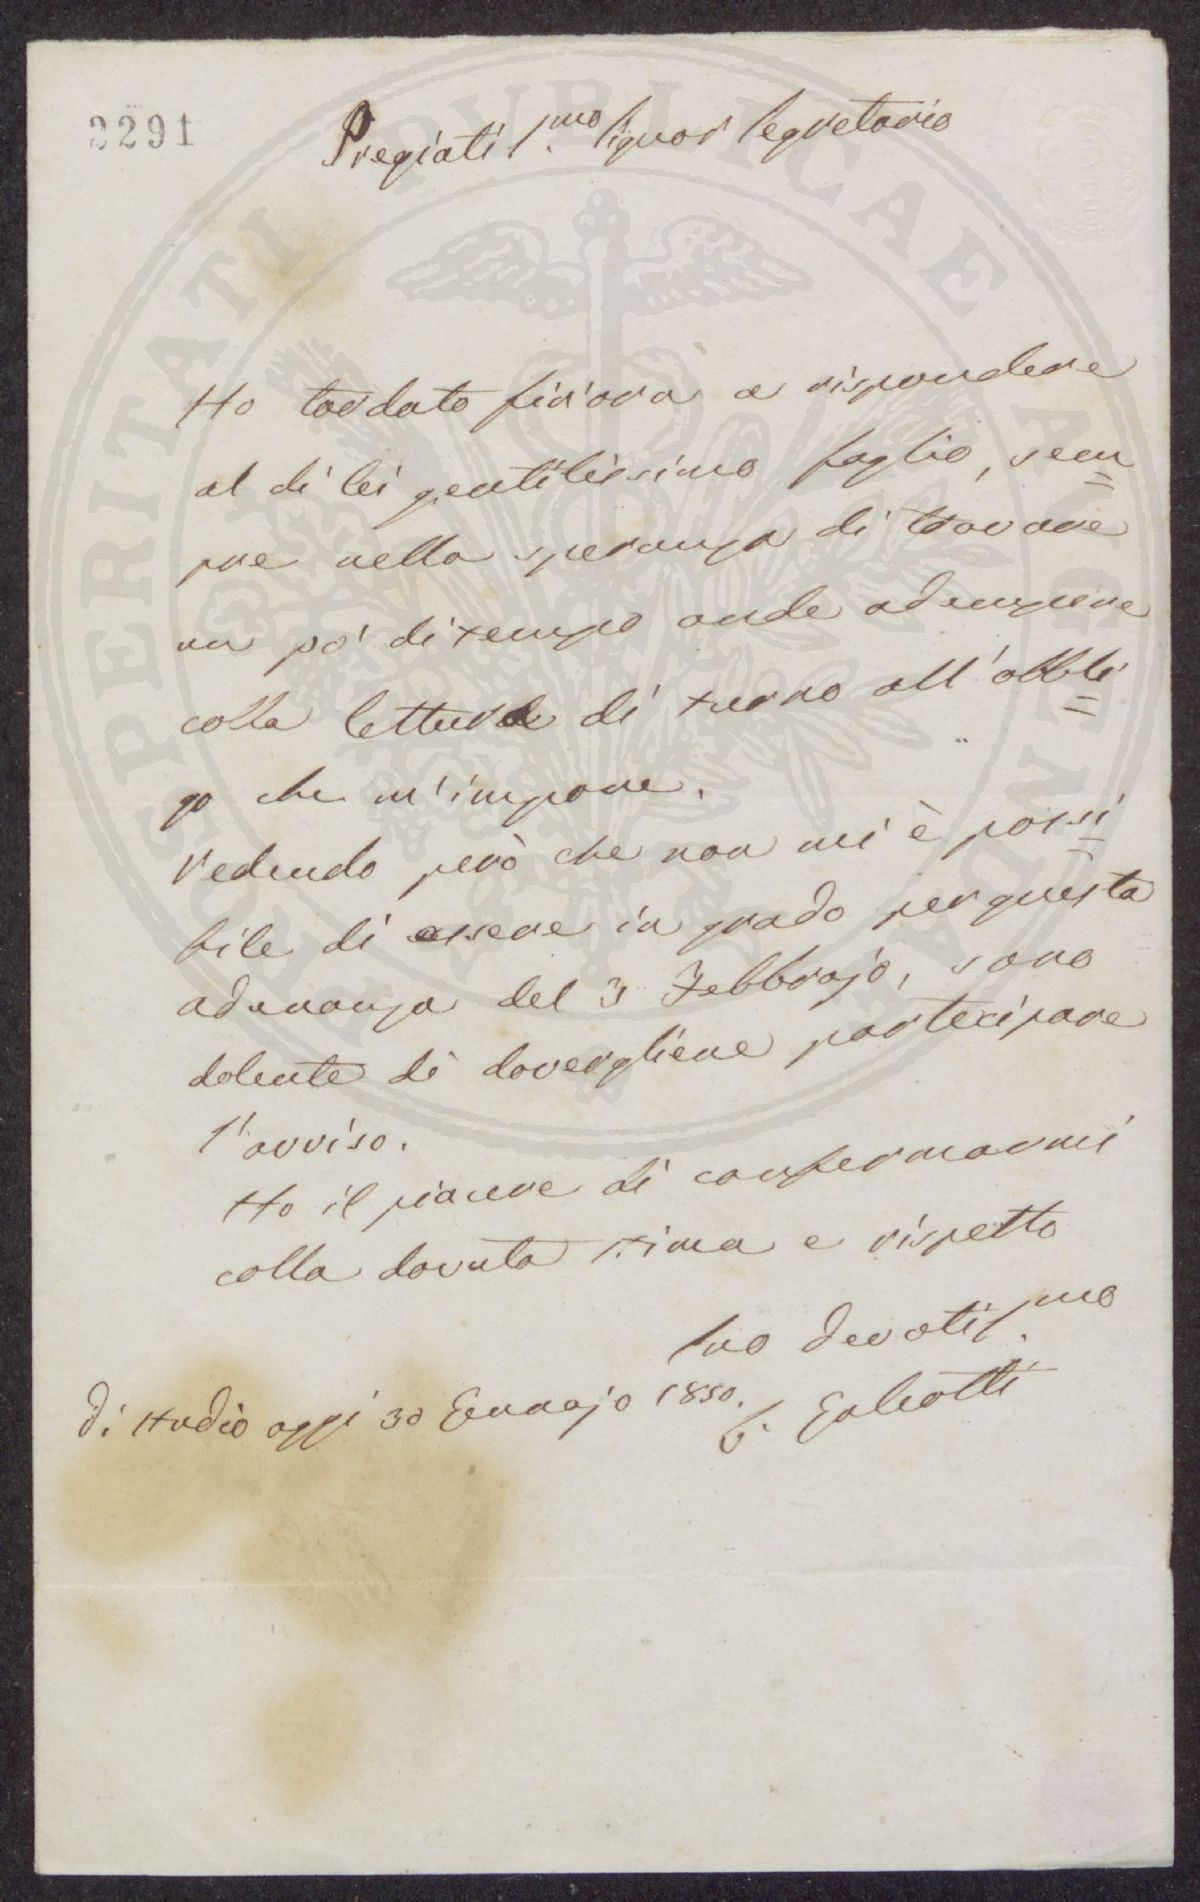 2291
Pregiatiss.mo Signor Segretario
Ho tardato fin'ora a rispondere
al di lei gentilissimo foglio, sem=
pre nella speranza di trovare
un po' di tempo onde adempiere
colla lettura di turno all'obbli=
go che m'impone.
Vedendo però che non mi è possi=
bile di essere in grado per questa
adunanza del 3 Febbrajo, sono
dolente di dovergliene partecipare
l'avviso.
Ho il piacere di confermarmi
colla dovuta stima e rispetto
Suo devotiss.mo
Di studio oggi 30 Gennajo 1850.
G. Galeotti
PROSPERITATI PVBLICAE AVGENDAE